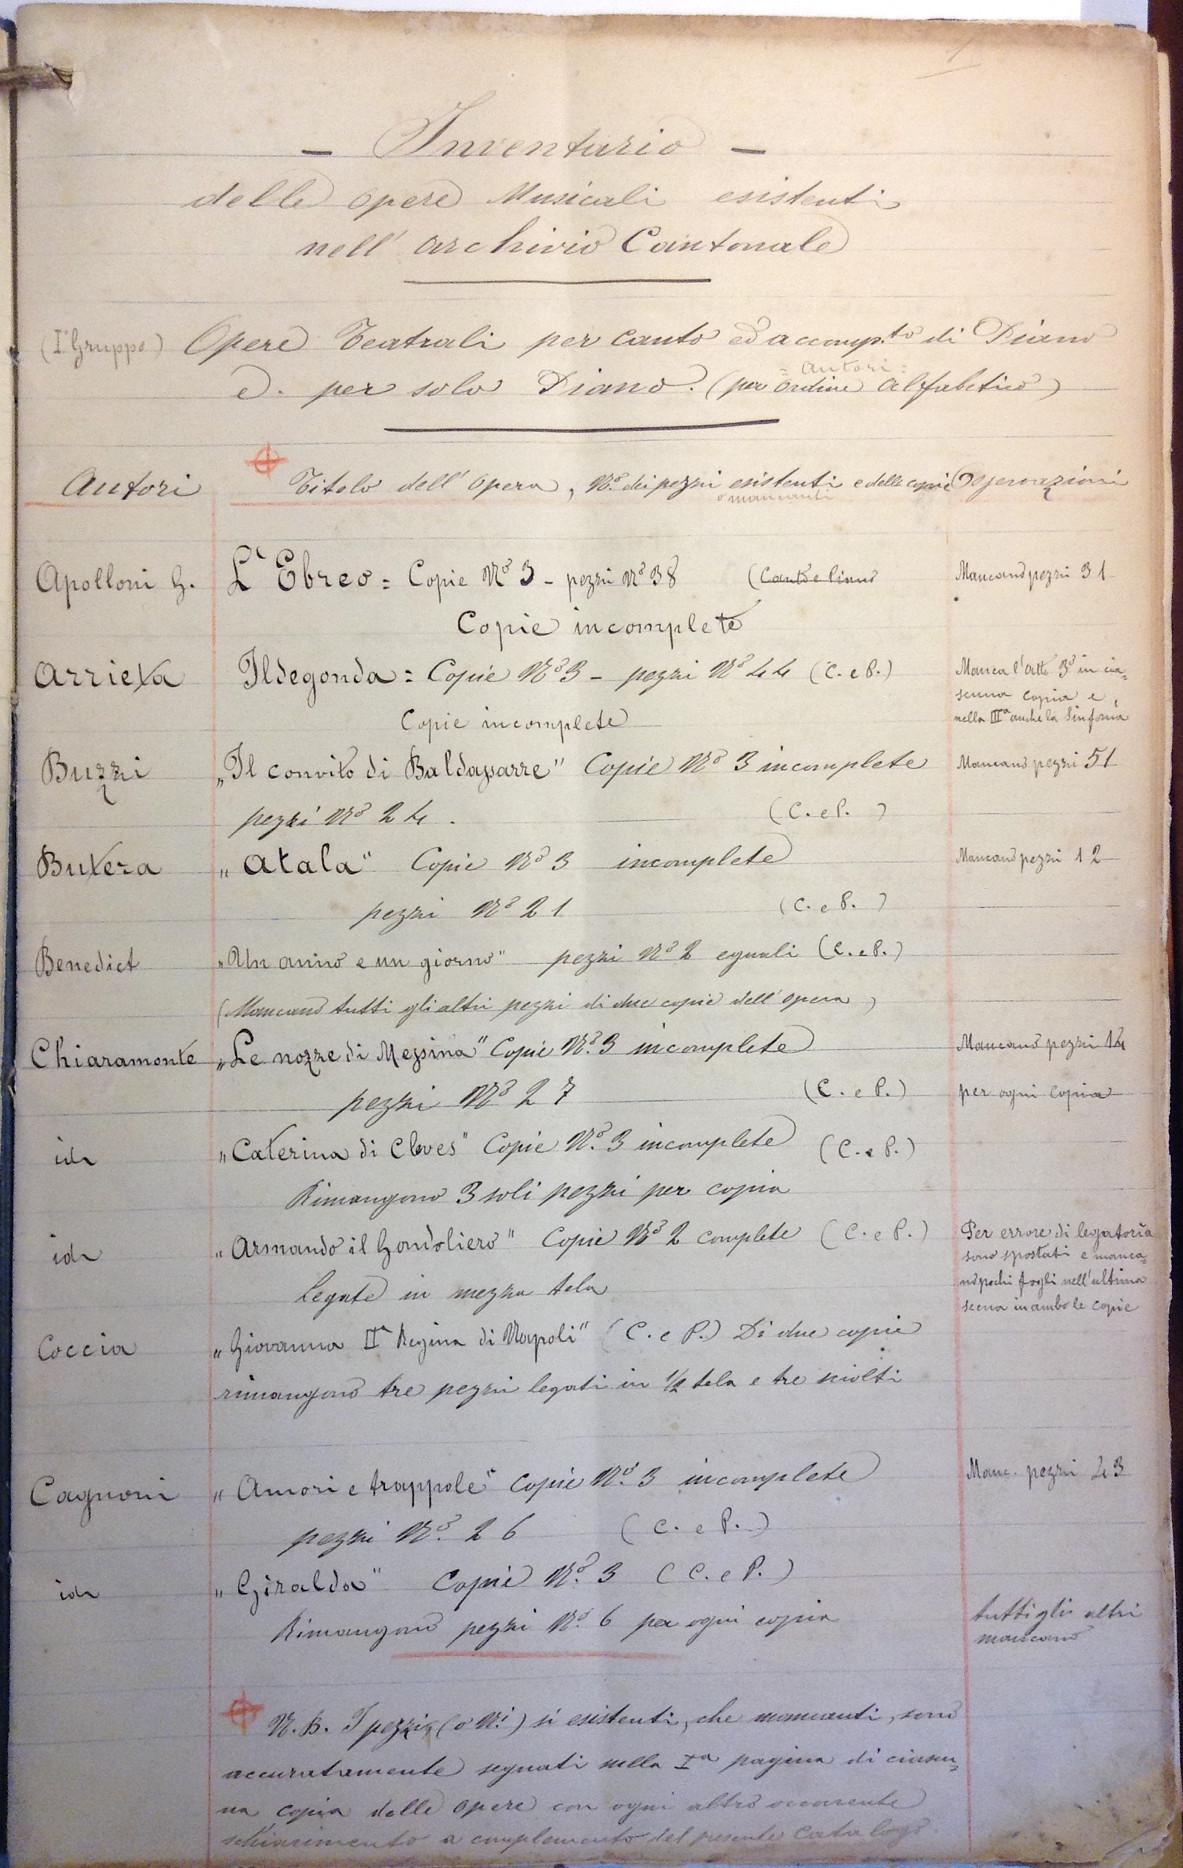 1
– Inventario –
delle opere Musicali esistenti
nell' archivio Cantonale
(I° Gruppo) Opere Teatrali per canto ed accomp.to di Piano
= autori =
e. per solo Piano. (per ordine alfabetico)
Autori Titolo dell' opera, N.° dei pezzi esistenti e delle copie Osservazioni
o mancanti
Apolloni G. L'Ebreo = Copie N° 3 – pezzi N° 38 (Canto e Piano Mancano pezzi 31
Copie incomplete
Arrieta Ildegonda = Copie N° 3 – pezzi N° 44 (C. e P.) Manca l'atto 3° in cia=
scuna copia e
Copie incomplete nella IIIa anche la Sinfonia
Buzzi „Il convito di Baldassarre" Copie N° 3 incomplete Mancano pezzi 51
pezzi N° 24. (C. e P.)
Butera „Atala" Copie N° 3 incomplete Mancano pezzi 12
pezzi N° 21 (C. e P.)
Benedict „Un anno e un giorno" pezzi N° 2 eguali (C. e P.)
(Mancano tutti gli altri pezzi di due copie dell' opera)
Chiaramonte „Le nozze di Messina" Copie N.° 3 incomplete Mancano pezzi 14
pezzi N° 27 (C. e P.) per ogni copia
id „Caterina di Cleves" Copie N.° 3 incomplete (C. e P.)
Rimangono 3 soli pezzi per copia
id „Armando il Gondoliero" Copie N° 2 complete (C. e P.) Per errore di legatoria
sono spostati e manca=
legate in mezza tela no pochi fogli nell'ultima
scena in ambo le copie
Coccia „Giovanna IIa Regina di Napoli" (C. e P.) Di due copie
rimangono tre pezzi legati in 1/2 tela e tre sciolti
Cagnoni „Amori e trappole" Copie N.° 3 incomplete Manc. pezzi 43
pezzi N.° 26 (C. e P.)
id „Giralda" Copie N.° 3 (C. e P.)
Rimangono pezzi N.° 6 per ogni copia tutti gli altri
mancano
N.B. I pezzi (o N.i) sì esistenti, che mancanti, sono
accuratamente segnati nella Ia pagina di ciascu=
na copia delle opere con ogni altro occorrente
schiarimento a complemento del presente Catalogo.